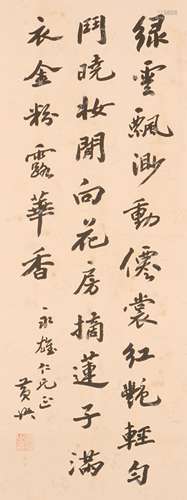 绿雲飄渺動僊裳紅艷輕勻
鬥曉妝閒向花房摘蓮子滿
衣金粉露華香
永雄仁兄正
黄興